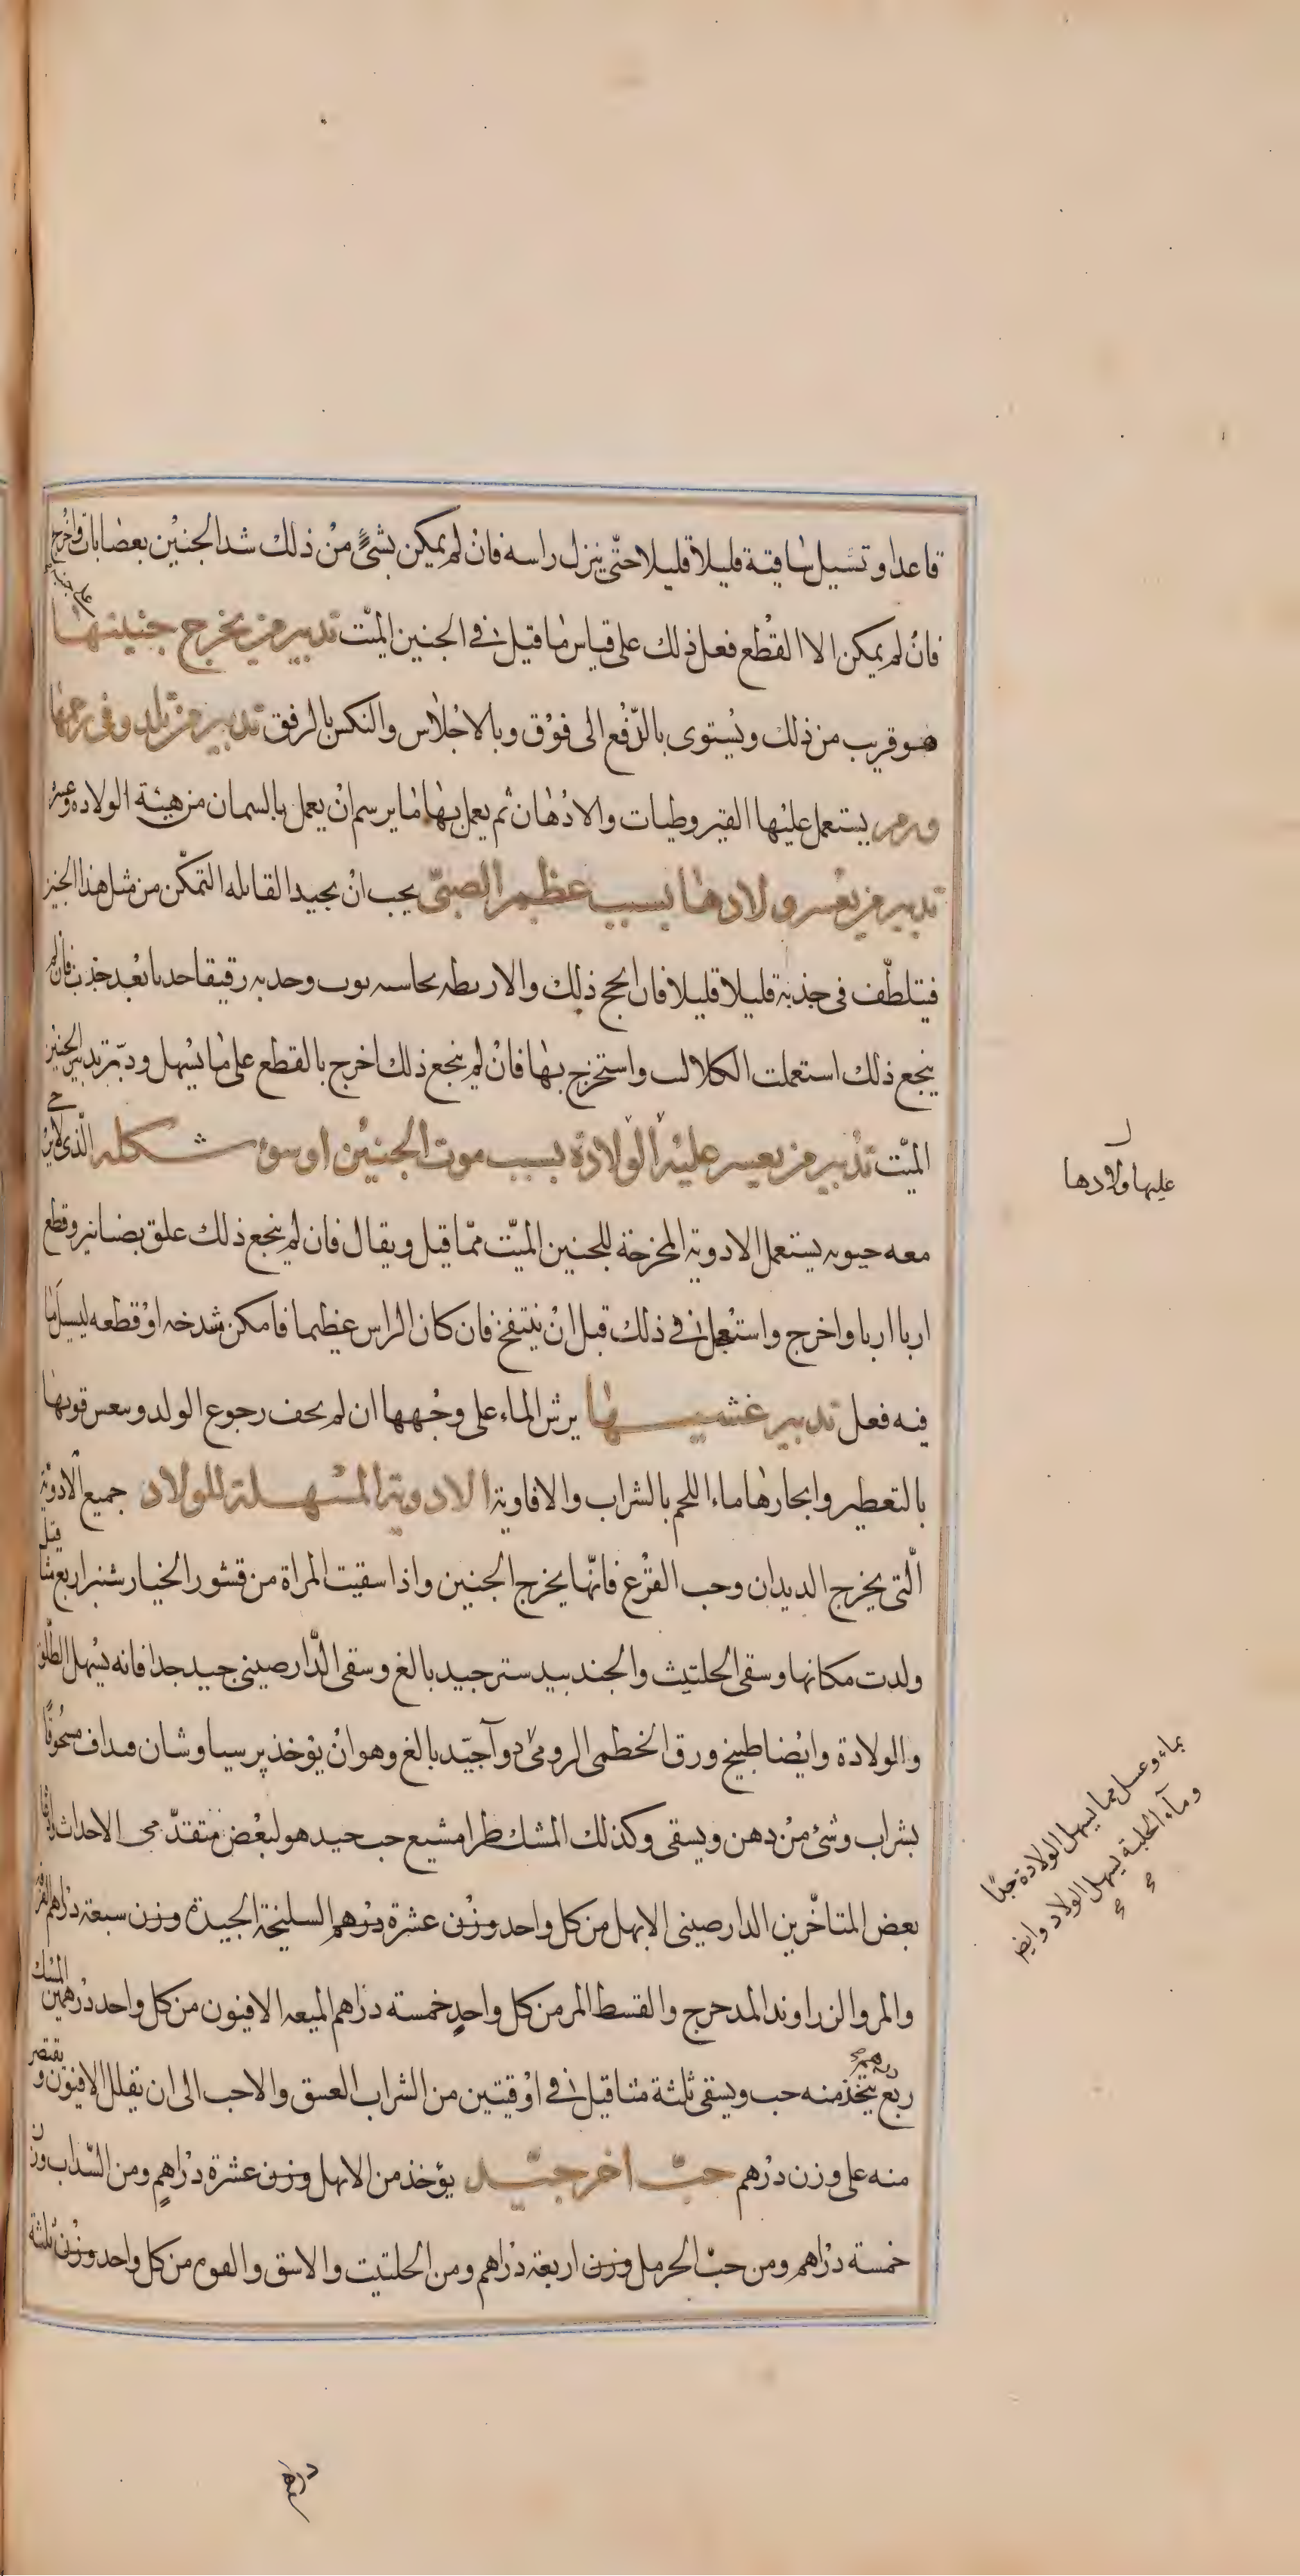 قاعدا وتسيل ساقيه قليلا قليلا حتّى ينزل راسه فان لم يمكن بشئ من ذلك شد الجنين بعصابات واخرج
فان لم يمكن الا القطع فعل ذلك على قياس ما قيل فى الجنين الميّت تدبير من يخرج جنينها على جنبه
هو قريب من ذلك ويستوى بالرّفع الى فوق وبالاجلاس والنكس بالرفق تدبير من تلد وفى رحمها
ورم يستعمل عليها القيروطيات والادهان ثم يعمل بها ما يرسم ان يعمل بالسمان من هيئة الولاده وغيره
تدبير من يعسر ولادها بسبب عظم الصبىّ يجب ان يجيد القابله التمكّن من مثل هذا الجنين
فيتلطّف فى جذبه قليلا قليلا فان انجح ذلك والا ربطه بحاسيه ثوب وجذبه رقيقا جذبا بعد جذب فان لم
ينجع ذلك استعملت الكلاليب واستخرج بها فان لم ينجع ذلك اخرج بالقطع على ما يسهل ودبّر تدبير الجنين
الميّت تدبير من يعسر عليه الولادة بسبب موت الجنين او سوء شكله الّذى لا يرجى
معه حيوته يستعمل الادوية المخرجة للجنين الميّت ممّا قيل ويقال فان لم ينجع ذلك علق بصنانير وقطع
اربا اربا واخرج واستعجل فى ذلك قبل ان ينتفخ فان كان الراس عظيما فامكن شدخه او قطعه ليسيل ما
فيه فعل تدبير غشيها يرش الماء على وجهها ان لم يخف رجوع الولد وينعش قوتها
بالتعطير وايجارها ماء اللحم بالشراب والافاويه الادوية المسهلة للولاد جميع الادوية
الّتى يخرج الديدان وحب القرع فانّها يخرج الجنين واذا سقيت المراة من قشور الخيار شنبر اربع مثاقيل
ولدت مكانها وسقى الحلتيث والجندبيدستر جيد بالغ وسقى الدّارصينى جيد جدا فانه يسهل الطّلق
والولادة وايضا طبيخ ورق الخطمى الرومى دوآ جيّد بالغ وهو ان يؤخذ پرسياوشان مداف مسحوقا
بشراب وشئ من دهن ويسقى وكذلك المشكطرامشيع حب جيد هو لبعض متقدّمى الاحداث
بعض المتاخّرين الدارصينى الابهل من كل واحد وزن عشرة درهم السليخة الجيدة وزن سبعة دراهم القرفه
والمر والزراوند المدحرج والقسط المر من كل واحد خمسة دراهم الميعه الافيون من كل واحد درهمين المسك
ربع درهم يتّخذ منه حب ويسقى ثلثة مثاقيل فى اوقيتين من الشراب العتيق والاحب الى ان يقلل الافيون ويقتصر
منه على وزن درهم حبّ اخر جيّد يؤخذ من الابهل وزن عشرة دراهم ومن السّداب وزن
خمسة دراهم ومن حبّ الحرمل وزن اربعة دراهم ومن الحلتيت والاشق والفوه من كل واحد وزن ثلثة
عليها ولادها
بماء وعسل مما يسهل الولادة جدّا
ومآء الحلبة يسهل الولاد وايض
دراهم